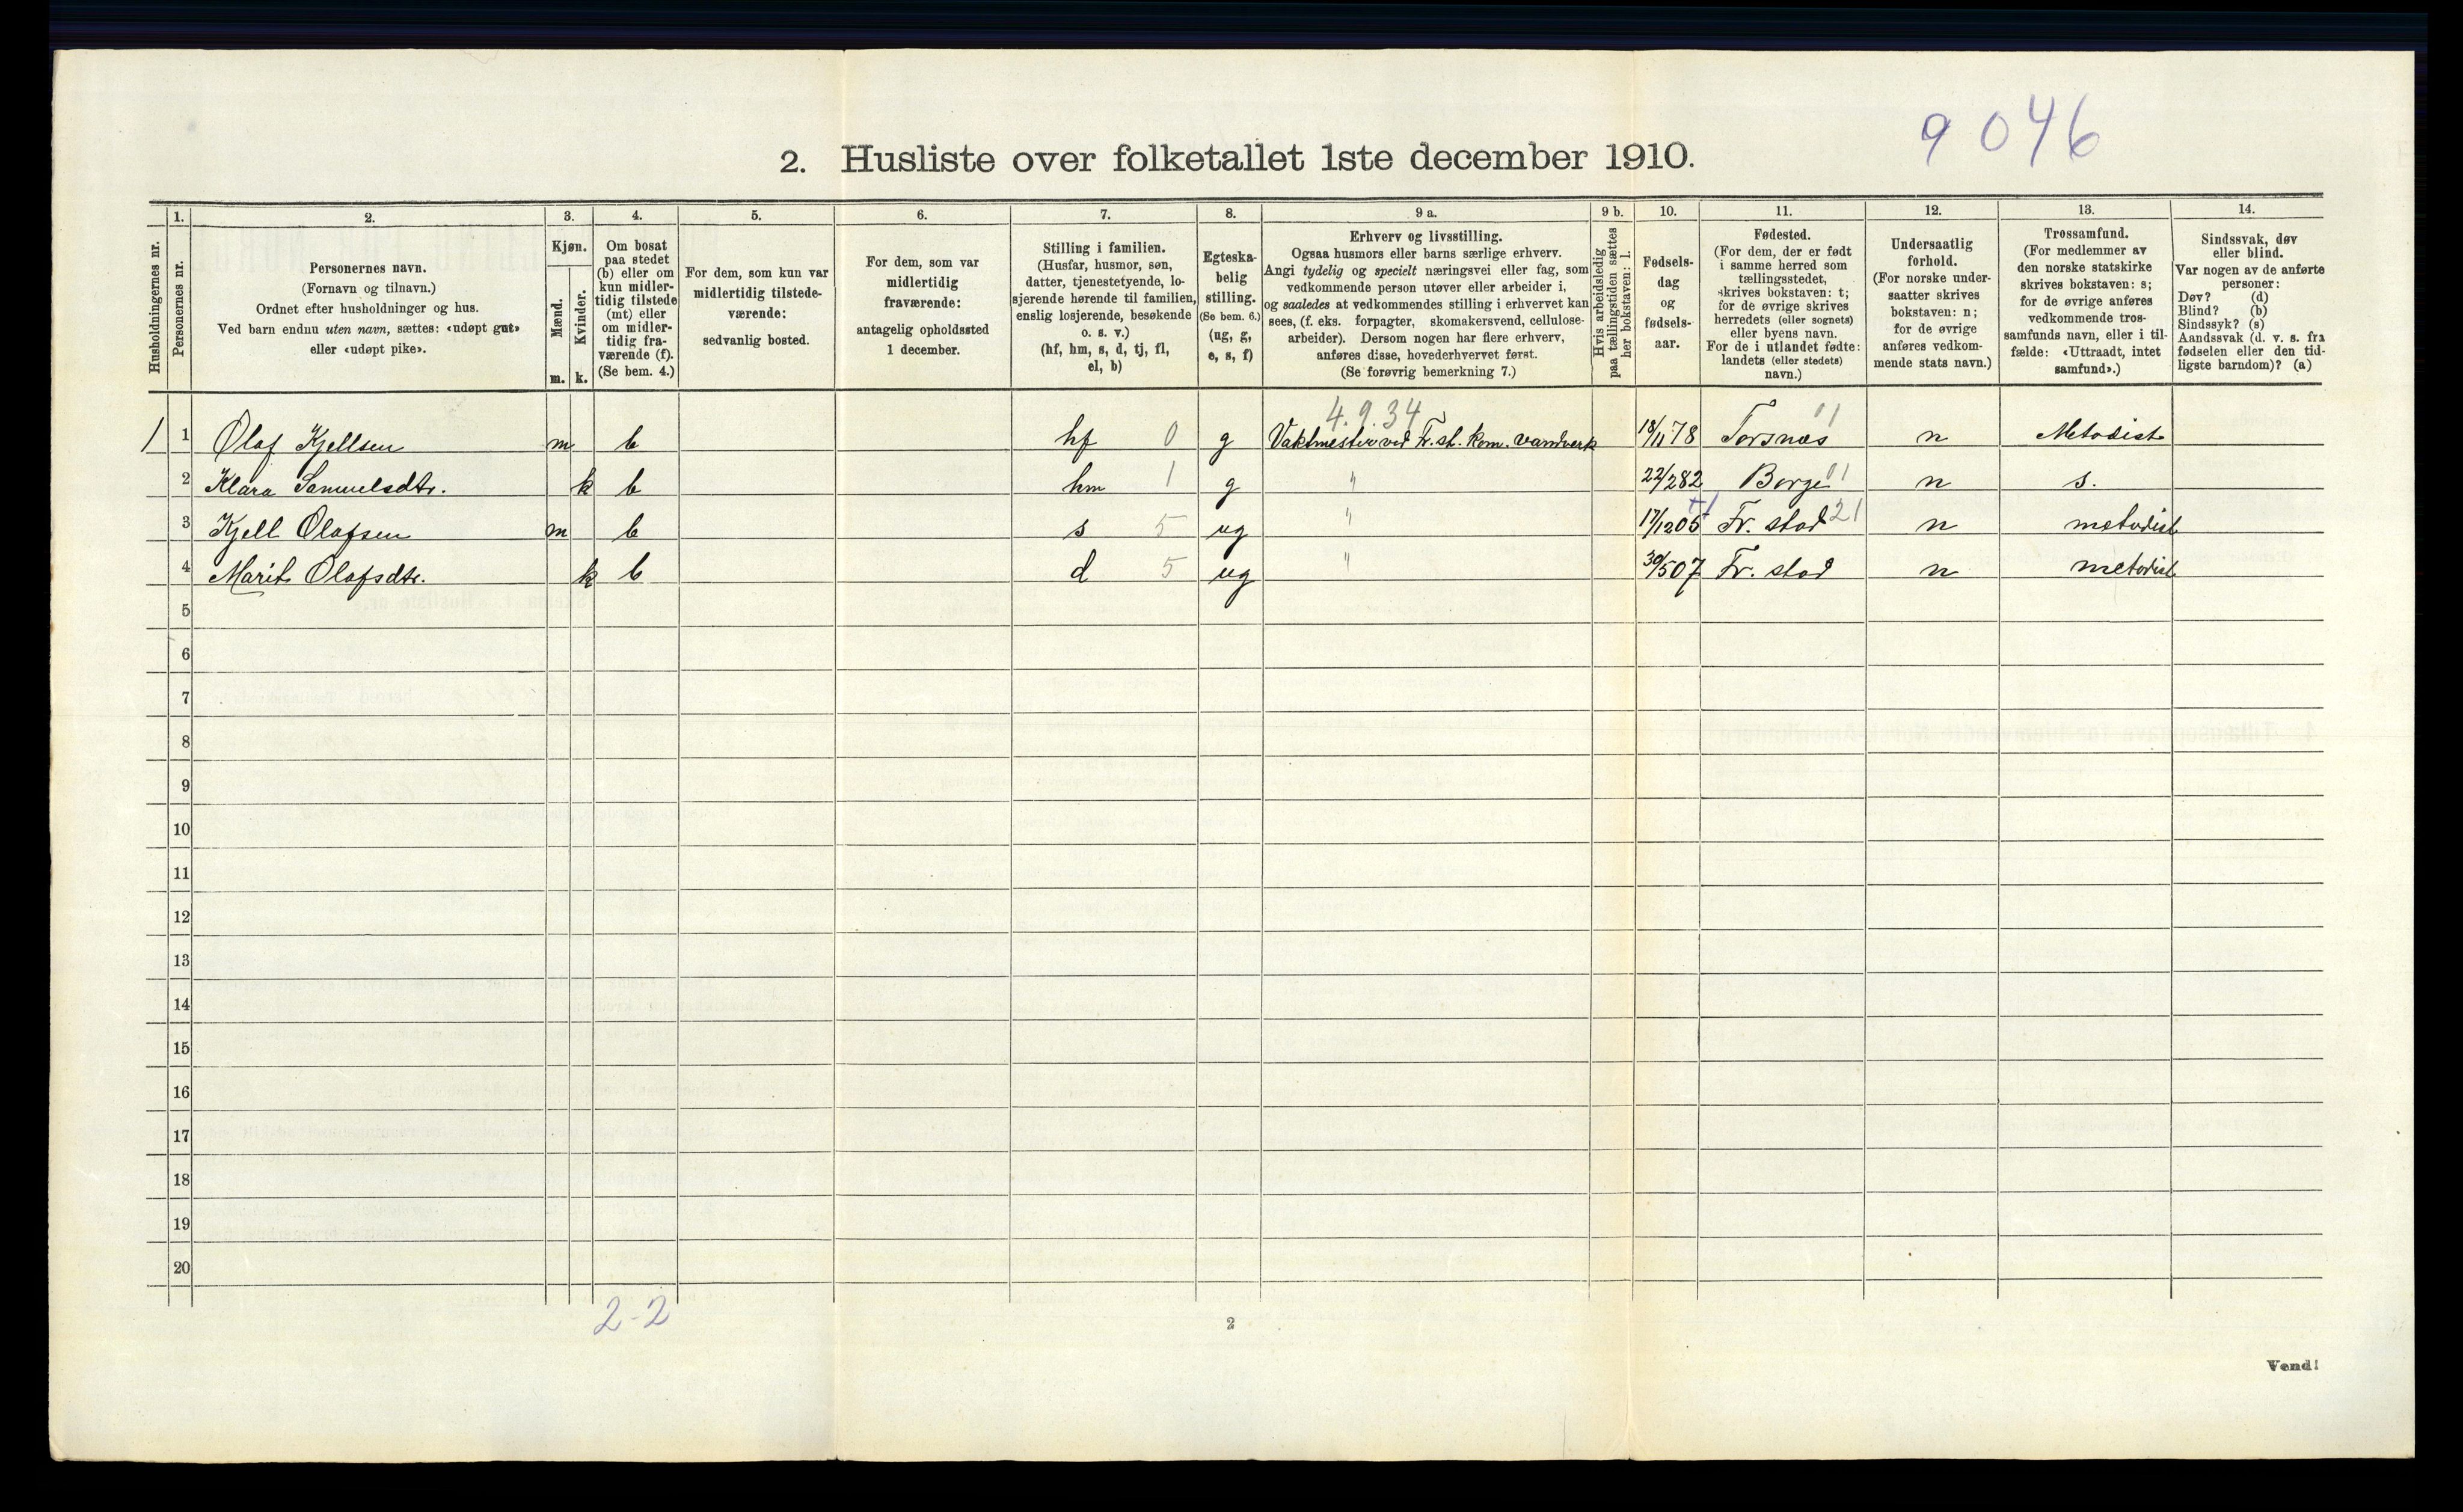 9 046
2. Husliste over folketallet 1ste december 1910.
Husholdningernes nr.
1.
Personernes nr.
2.
Personernes navn.
(Fornavn og tilnavn.)
Ordnet efter husholdninger og hus.
Ved barn endnu uten navn, sættes: «udøpt gut»
eller «udøpt pike».
3.
Kjøn.
Mænd.
Kvinder.
m. k.
4.
Om bosat
paa stedet
(b) eller om
kun midler-
tidig tilstede
(mt) eller
om midler-
tidig fra-
værende (f).
(Se bem. 4.)
5.
For dem, som kun var
midlertidig tilstede-
værende:
sedvanlig bosted.
6.
For dem, som var
midlertidig
fraværende:
antagelig opholdssted
1 december.
7.
Stilling i familien.
(Husfar, husmor, søn,
datter, tjenestetyende, lo-
sjerende hørende til familien,
enslig losjerende, besøkende
o. s. v.)
(hf, hm, s, d, tj, fl,
el, b)
8.
Egteska-
belig
stilling.
(Se bem. 6.)
(ug, g,
e, s, f)
9 a.
Erhverv og livsstilling.
Ogsaa husmors eller barns særlige erhverv.
Angi tydelig og specielt næringsvei eller fag, som
vedkommende person utøver eller arbeider i,
og saaledes at vedkommendes stilling i erhvervet kan
sees, (f. eks. forpagter, skomakersvend, cellulose-
arbeider). Dersom nogen har flere erhverv,
anføres disse, hovederhvervet først.
(Se forøvrig bemerkning 7.)
9 b.
Hvis arbeidsledig
paa tællingstiden sættes
her bokstaven: l.
10.
Fødsels-
dag
og
fødsels-
aar.
11.
Fødested.
(For dem, der er født
i samme herred som
tællingsstedet,
skrives bokstaven: t;
for de øvrige skrives
herredets (eller sognets)
eller byens navn.
For de i utlandet fødte:
landets (eller stedets)
navn.)
12.
Undersaatlig
forhold.
(For norske under-
saatter skrives
bokstaven: n;
for de øvrige
anføres vedkom-
mende stats navn.)
13.
Trossamfund.
(For medlemmer av
den norske statskirke
skrives bokstaven: s;
for de øvrige anføres
vedkommende tros-
samfunds navn, eller i til-
fælde: «Uttraadt, intet
samfund».)
14.
Sindssvak, døv
eller blind.
Var nogen av de anførte
personer:
Døv? (d)
Blind? (b)
Sindssyk? (s)
Aandssvak (d. v. s. fra
fødselen eller den tid-
ligste barndom)? (a)
4.9.34 01
1 1 Olaf Kjellsen m b hf 0 g Vaktmester ved Fr.st. kom. vandverk 18/11 78 Torsnæs n Metodist
2 Klara Samuelsdtr. k b hm 1 g " 22/2 82 Borge 01 n s.
3 Kjell Olafsen m b s 5 ug " 17/12 05 Fr. stad 21 n metodist
4 Marit Olafsdtr. k b d 5 ug " 30/5 07 Fr. stad n metodist
5
6
7
8
9
10
11
12
13
14
15
16
17
18
19
20
2-2
2
Vend!